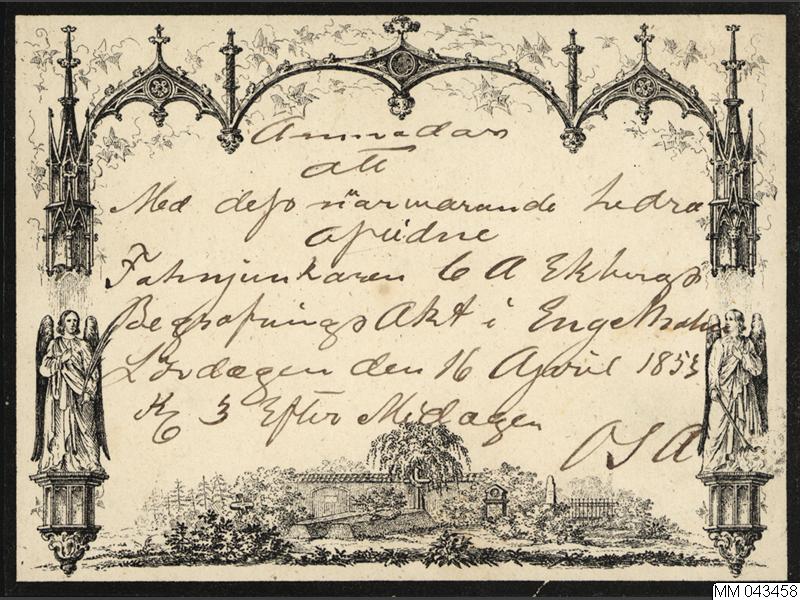 Anmodas
att
Med dess närwarande hedra
afledne
Fahnjunkaren C A Ekbergs
Begrafnings Akt i Engelholm
Lördagen den 16 April 1853
Kl 3 Efter Midagen
O S A
MM 043458